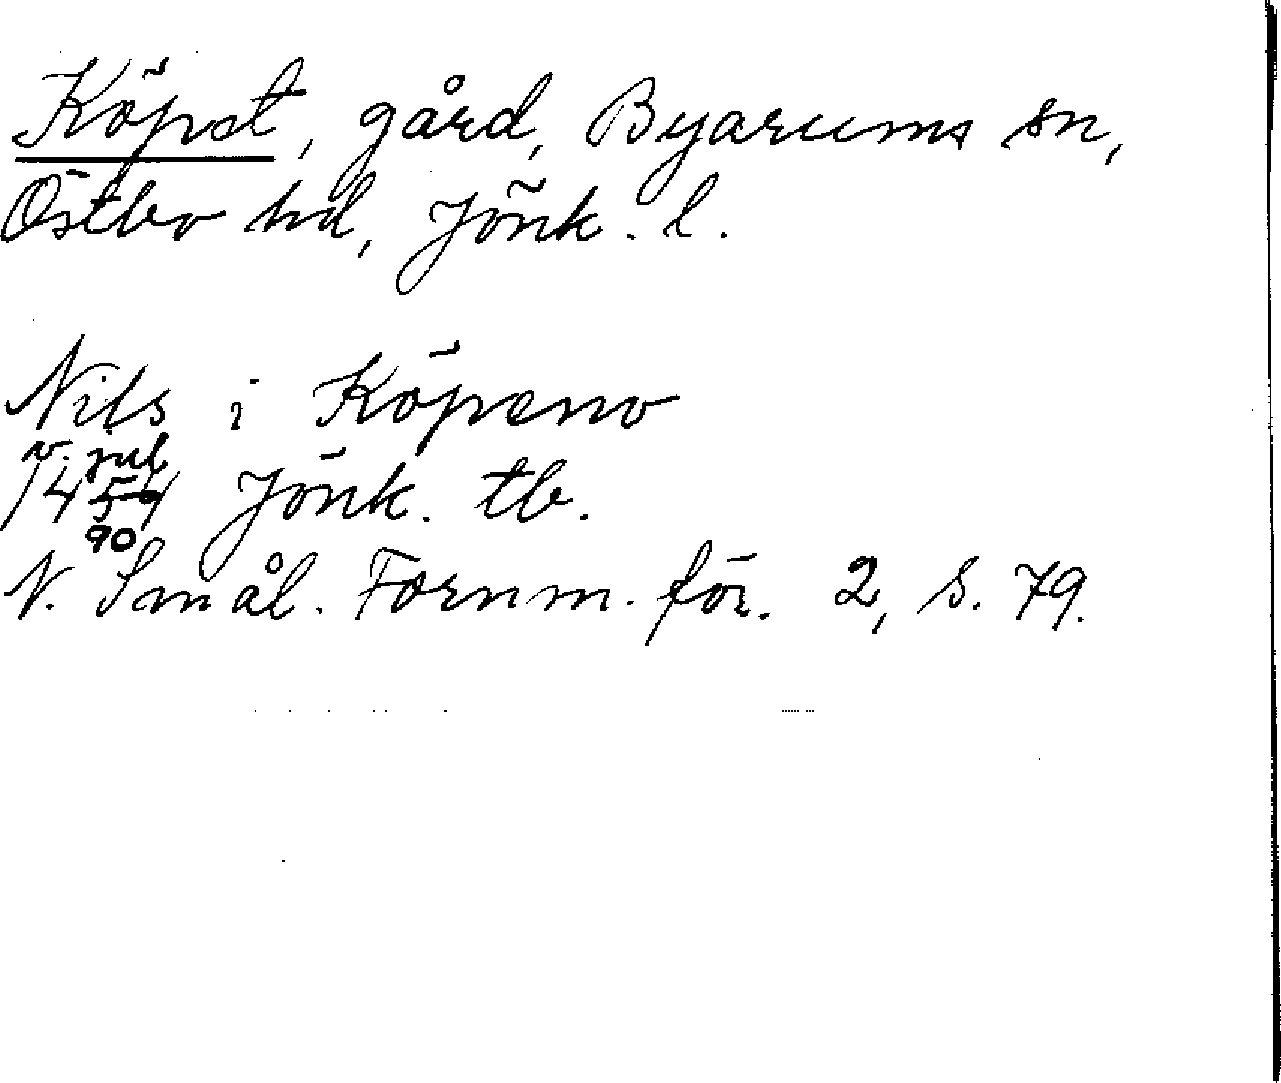 Köpst, gård, Byarums sn,
Östbo hd, Jönk. l.
Nils i Köpæno
v. jul
1454 Jönk. tb.
90
N. Smål. Fornm. för. 2, s. 79.